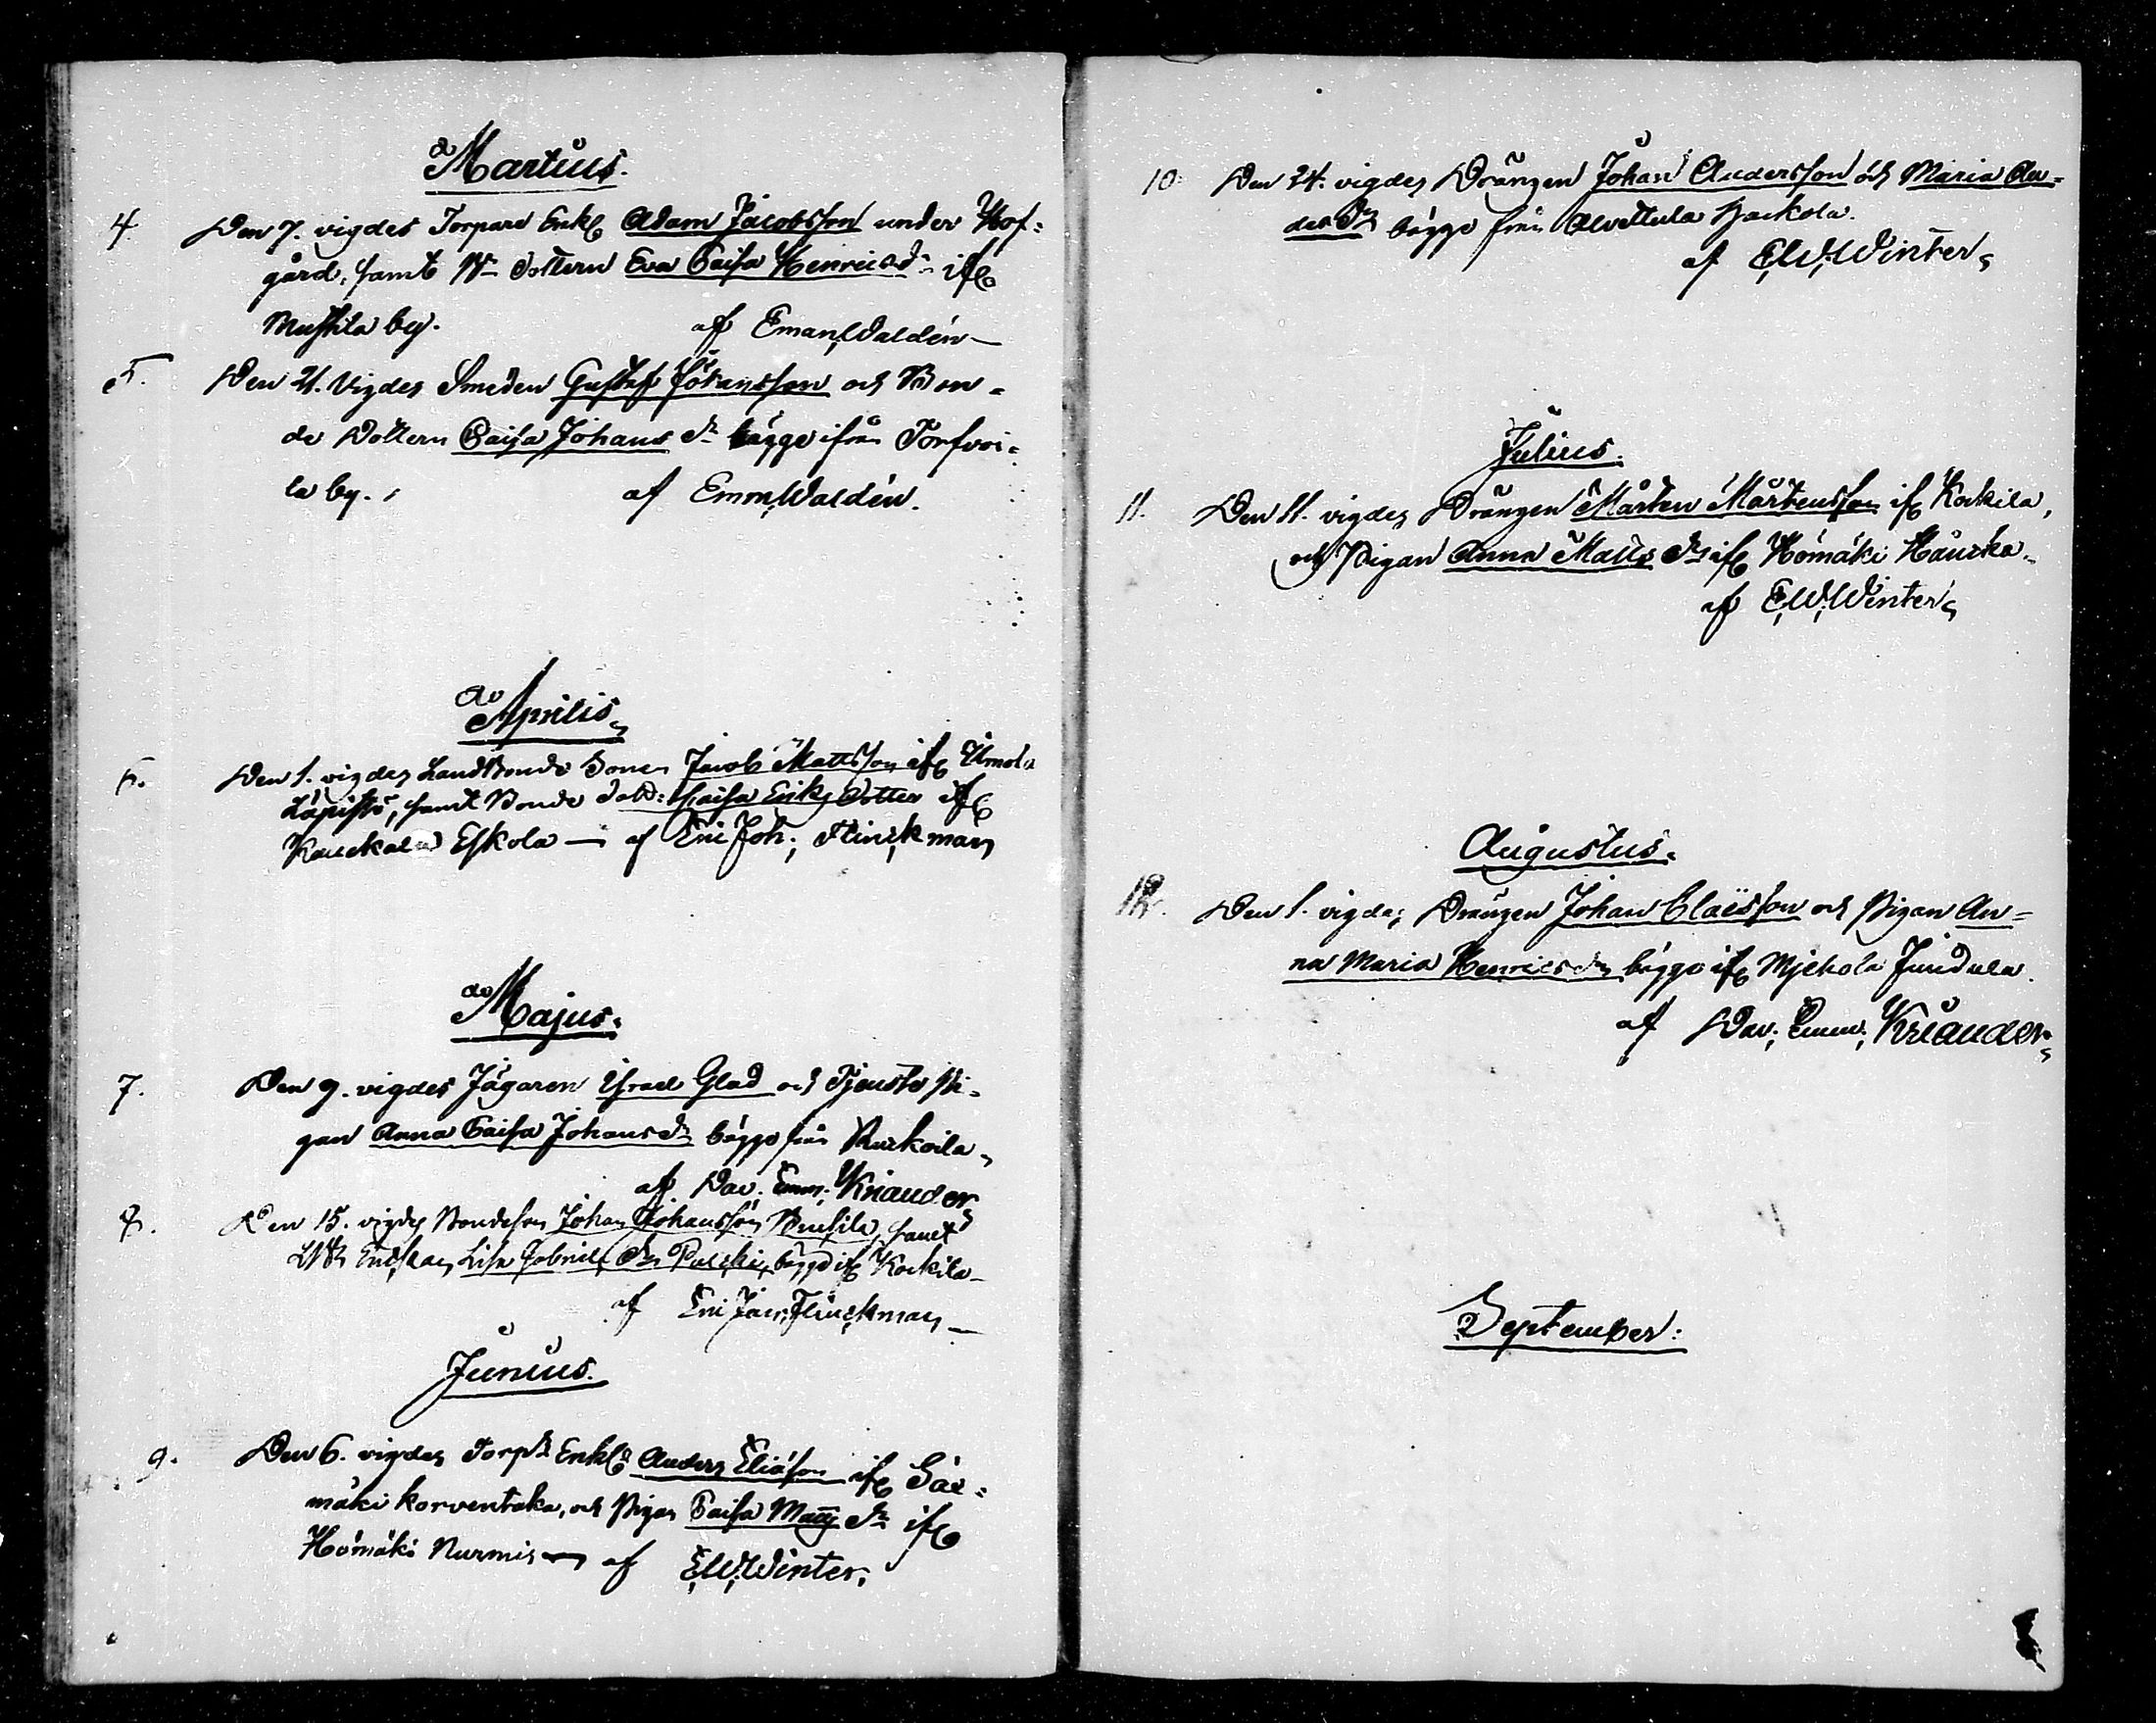 Martius.
4. Den 7. vigdes Torpare Enkl: Adam Jacobsson under Hof-
gård, samt Bd. dottern Eva Caisa Henricsdr. ifr.
Mustila by. af Eman. Waldén
5. Den 21. vigdes Smeden Gustaf Johansson och Bon-
de Dottern Caisa Johans dr. bägge ifrån Torfvoi-
la by. af Emm. Waldén.
Aprilis
6. Den 1. vigdes Landbonde Sonen Jacob Mattsson ifr.
samt Bonde dott: Caisa Eriks Dotter ifr.
Kauckala Eskola af Eric Joh. Flinckman
Majus.
7. Den 9. vigdes Jägaren Israel Glad och Tjenste Pi-
gan Anna Caisa Johansdr. bägge från
af Dav. Emm. Kriander
8. Den 15. vigdes Bondeson Johan Johansson samt
Lisa Gabriels dr. bägge ifr. Kockila
af Eric Flinckman
Junius.
9. Den 6. vigdes Torp. Enkl. Anders Eliäson ifr. Säx-
mäki korventaka, och Pigan Caisa Matts dr. ifr.
Hömäki Nurmis af E. W. Winter.
10. Den 24. vigdes Drängen Johan Andersson och Maria An-
ders dr. bägge från Alvettula
af E. W. Winter
Julius.
11. Den 11. vigdes Drängen Mårten Mårtensson ifr. Kockila,
och Pigan Anna Matts dr. ifr. Hömäki
af E. W. Winter
Augustus.
12. Den 1. vigdes Drängen Johan Claësson och Pigan An-
na Maria Henricsdr. bägge ifr. Mjehola
af Dav. Emm. Kriander
September: